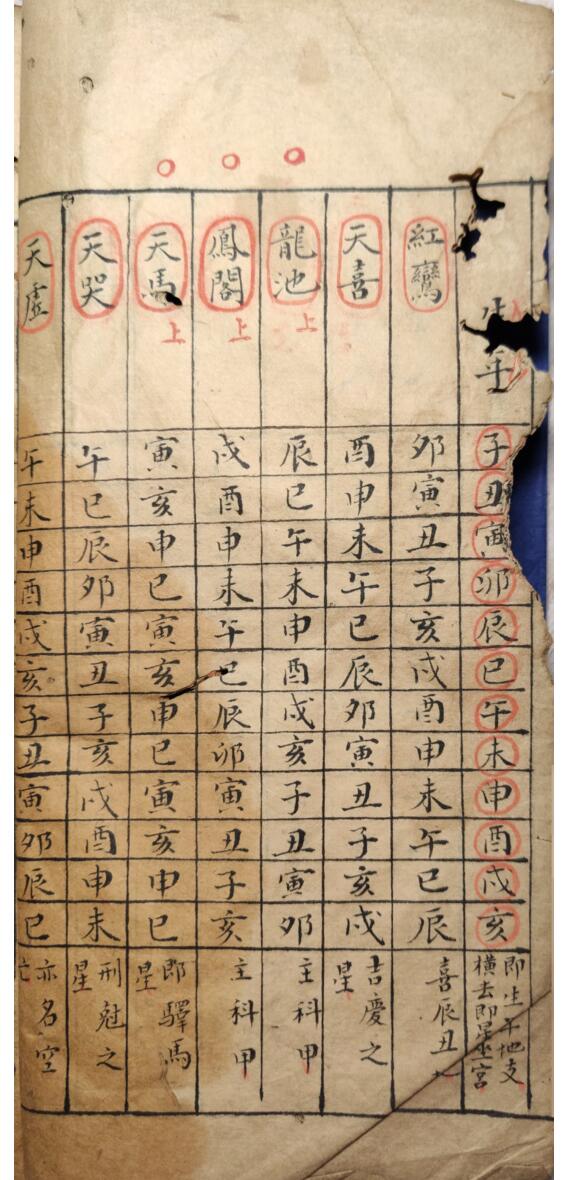 生年
子丑寅卯辰巳午未申酉戌亥
即生年地支
橫去即星坐宮
紅鸞
卯寅丑子亥戌酉申未午巳辰
喜辰丑
天喜
酉申未午巳辰卯寅丑子亥戌
吉慶之
星
龍池
上
辰巳午未申酉戌亥子丑寅卯
主科甲
鳳閣
上
戌酉申未午巳辰卯寅丑子亥
主科甲
天馬
上
寅亥申巳寅亥申巳寅亥申巳
即驛馬
星
天哭
午巳辰卯寅丑子亥戌酉申未
刑尅之
星
天虛
午未申酉戌亥子丑寅卯辰巳
亦名空
亡